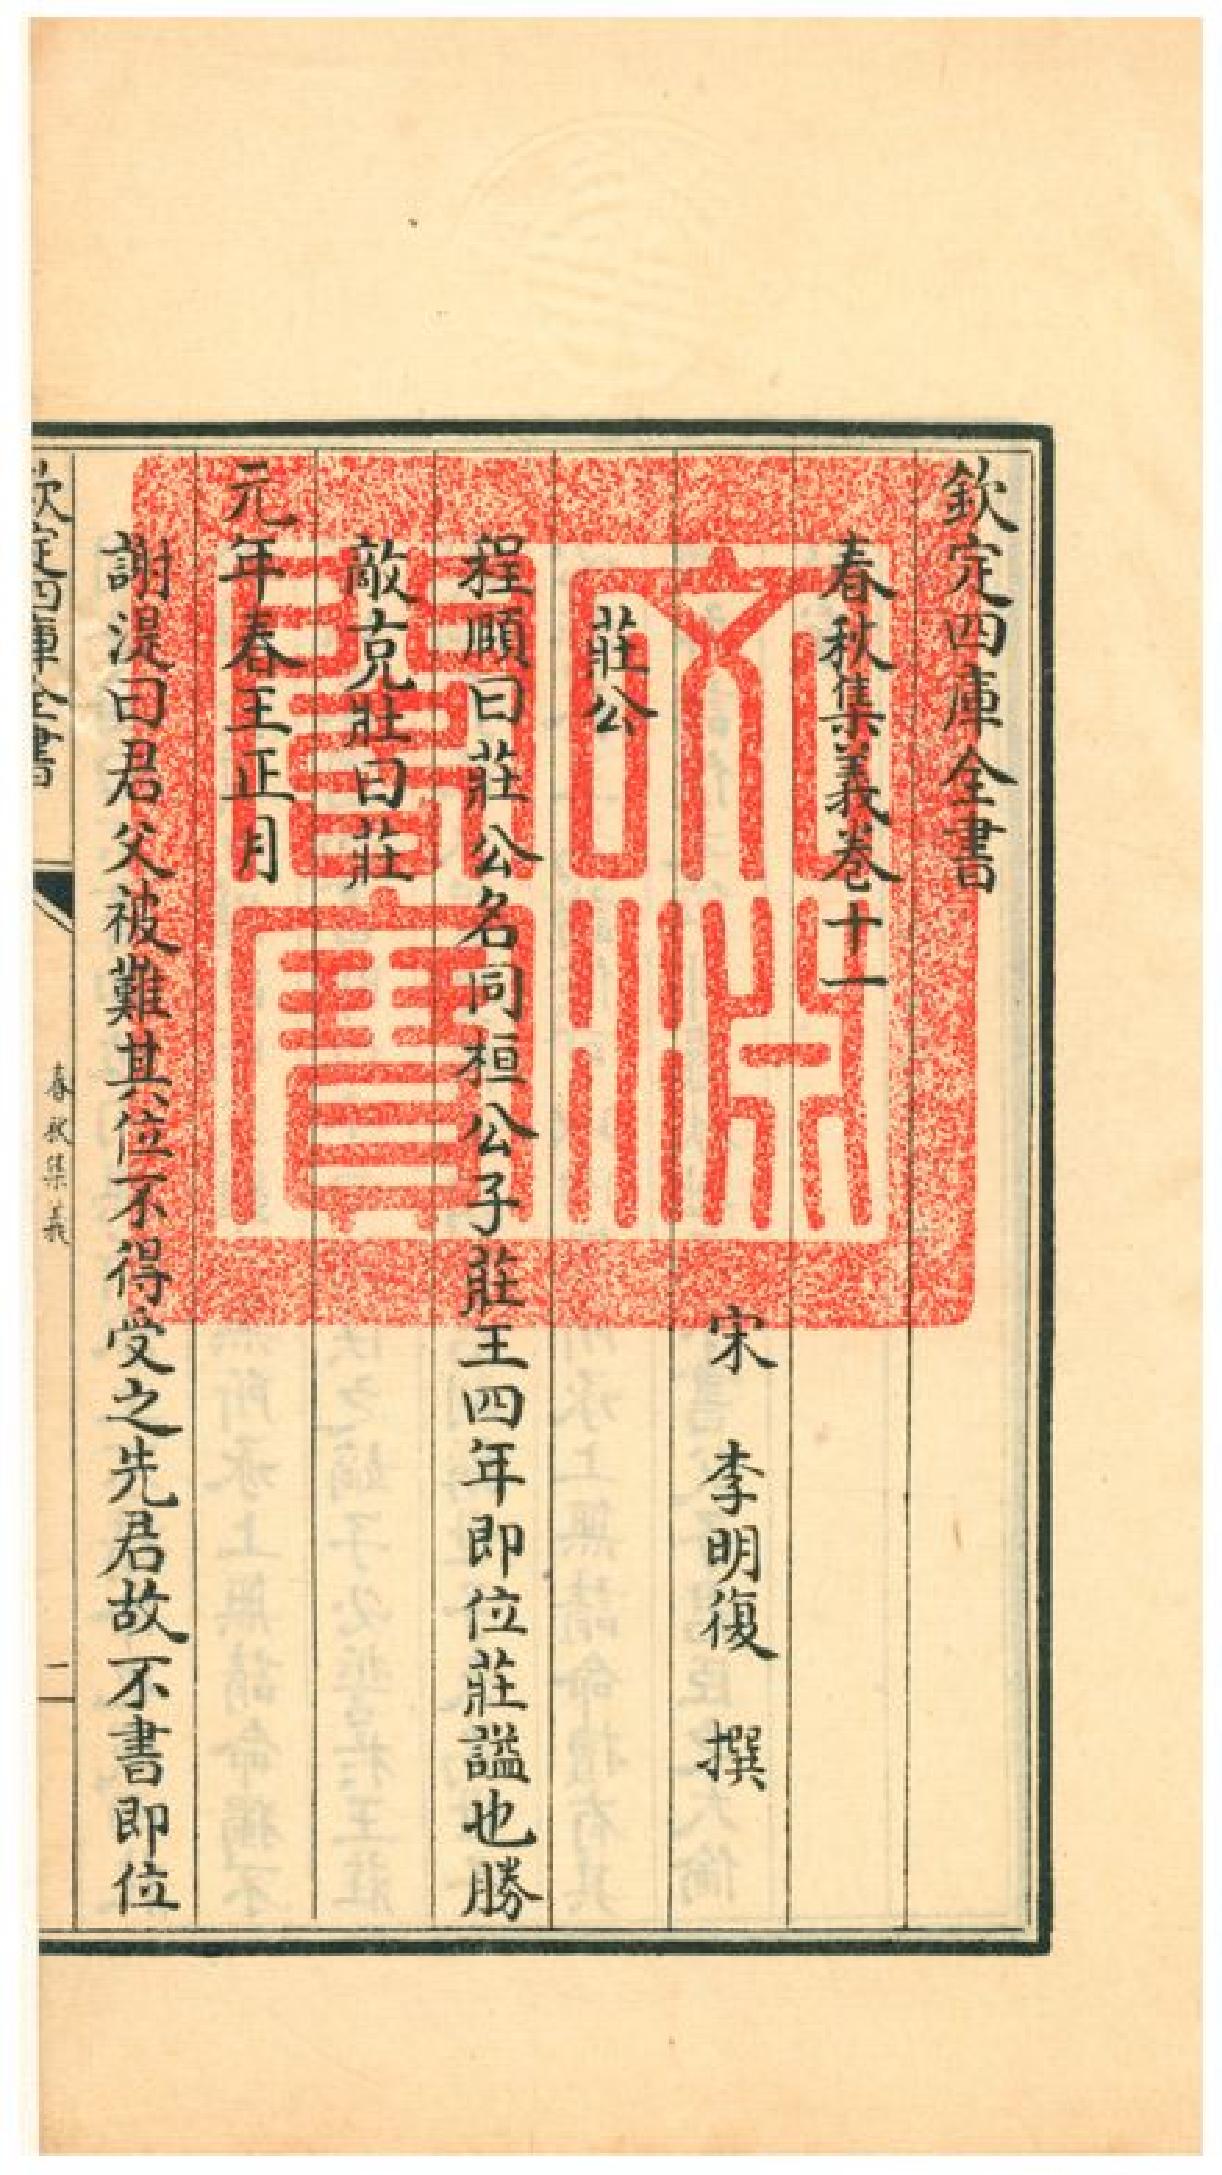 欽定四庫全書
春秋集義卷十一
宋 李明復 撰
莊公
程頤曰莊公名同桓公子莊王四年即位莊謚也勝
敵克壯曰莊
元年春王正月
謝湜曰君父被難其位不得受之先君故不書即位
欽定四庫全書
春秋集義
文淵閣寶